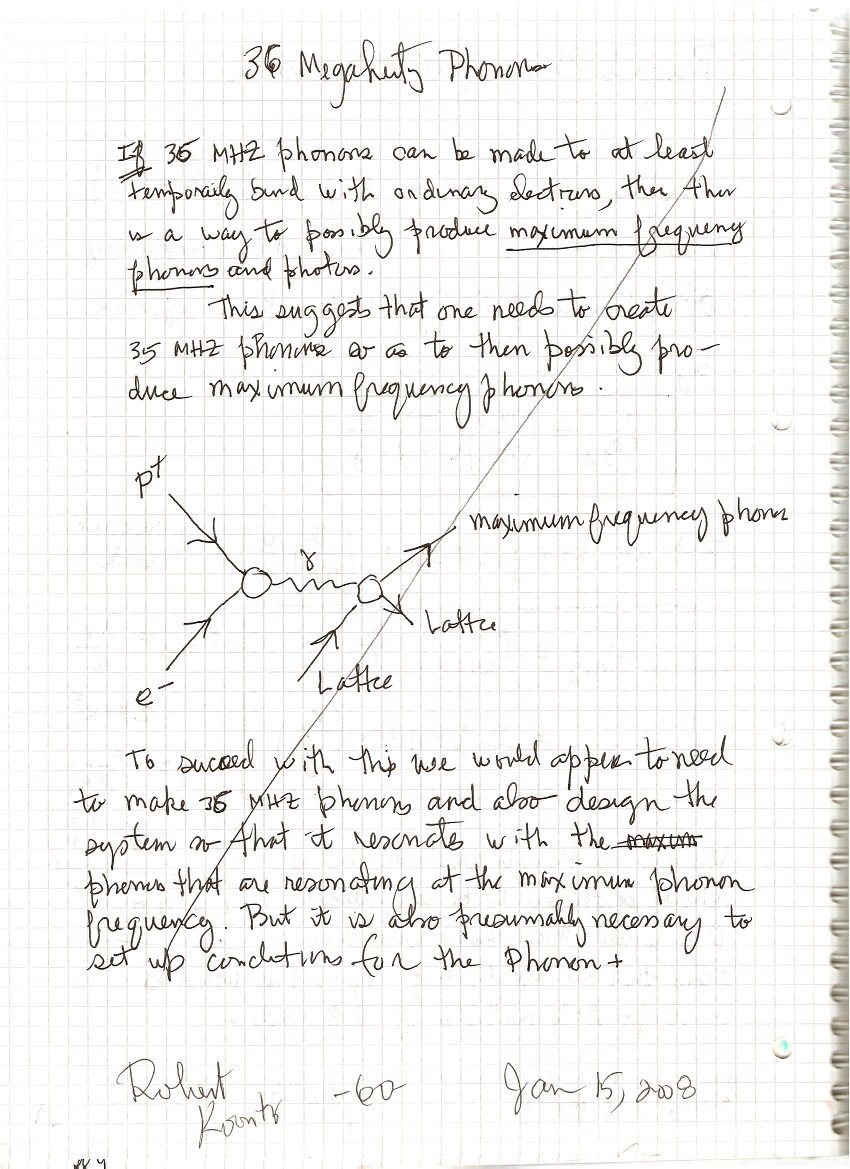 36 Megahertz Phonons
If 36 MHZ phonons can be made to at least
temporaily bind with ordinary electrons, then ther
is a way to possibly produce maximum frequency
phonons and photons.
This suggests that one needs to create
35 MHZ phonons so as to then possibly pro-
duce maximum frequency phonons.
p+
γ
maximum frequency phonon
Lattice
e-
Lattice
To succeed with this we would appear to need
to make 36 MHZ phonons and also design the
system so that it resonates with the maxum
phonons that are resonating at the maximum phonon
frequency. But it is also presumably necessary to
set up conditions for the Phonon +
Robert
Koontz
-60-
Jan 15, 2008